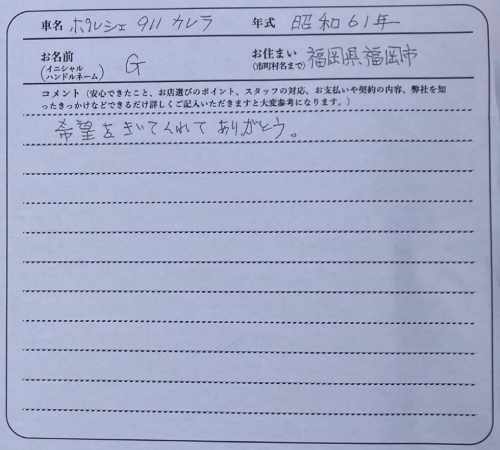 車名 ポルシェ 911 カレラ 年式 昭和61年
お名前 (イニシャル ハンドルネーム) G お住まい (市町村名まで) 福岡県福岡市
コメント（安心できたこと、お店選びのポイント、スタッフの対応、お支払いや契約の内容、弊社を知
ったきっかけなどできるだけ詳しくご記入いただきますと大変参考になります。）
希望をきいてくれてありがとう。